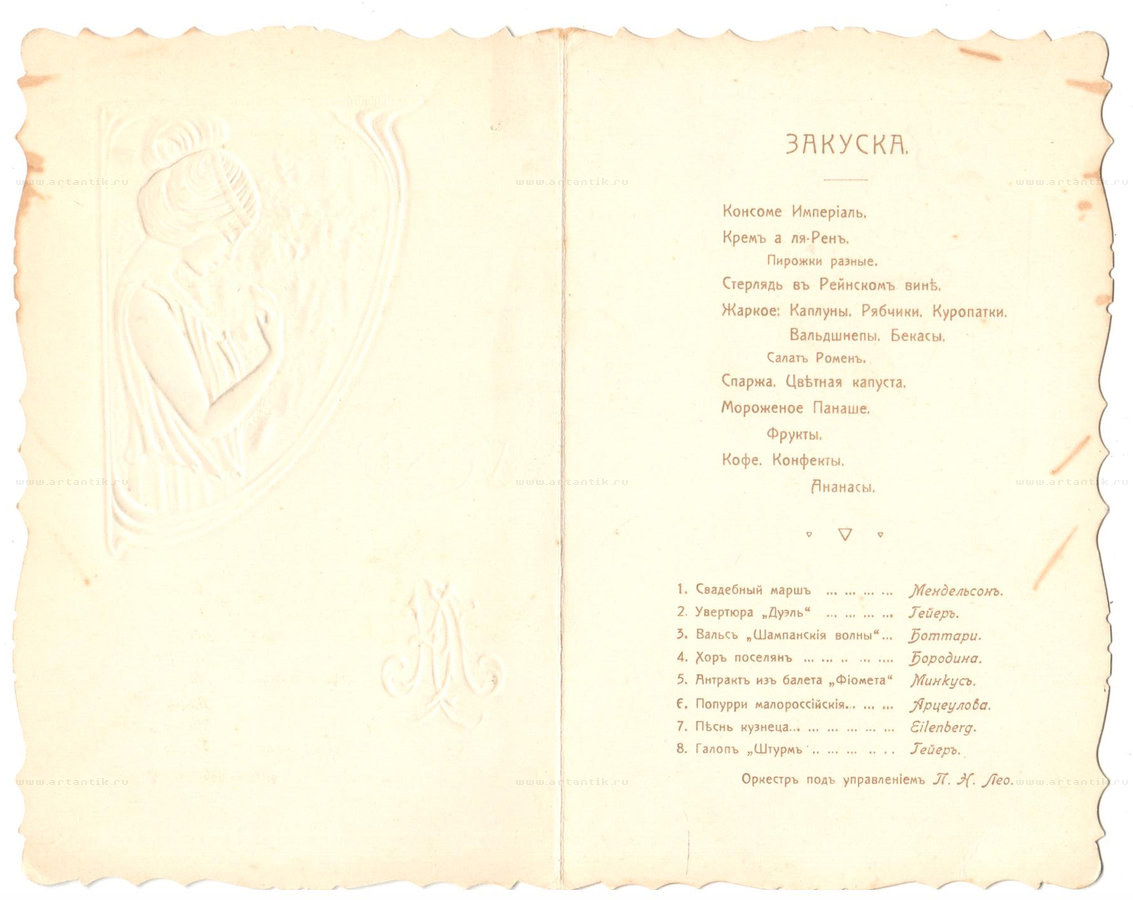 ЗАКУСКА.
Консоме Имперіаль.
Кремъ а ля-Ренъ.
Пирожки разные.
Стерлядь въ Рейнскомъ винѣ.
Жаркое: Каплуны. Рябчики. Куропатки.
Вальдшнепы. Бекасы.
Салатъ Роменъ.
Спаржа. Цвѣтная капуста.
Мороженое Панаше.
Фрукты.
Кофе. Конфекты.
Ананасы.
1. Свадебный маршъ ... ... ... ... Мендельсонъ.
2. Увертюра „Дуэль“ ... ... ... ... Гейеръ.
3. Вальсъ „Шампанскія волны“ ... Боттари.
4. Хоръ поселянъ ... ... .. ... .... Бородина.
5. Антрактъ изъ балета „Фіомета“ Минкусъ.
6. Попурри малороссійскія... ... ... Арцеулова.
7. Пѣснь кузнеца... ... ... ... ... ... Eilenberg.
8. Галопъ „Штурмъ .. ... ... .. . . Гейеръ.
Оркестръ подъ управленіемъ П. Н. Лео.
www.artantik.ru www.artantik.ru www.artantik.ru
www.artantik.ru www.artantik.ru www.artantik.ru
www.artantik.ru www.artantik.ru www.artantik.ru